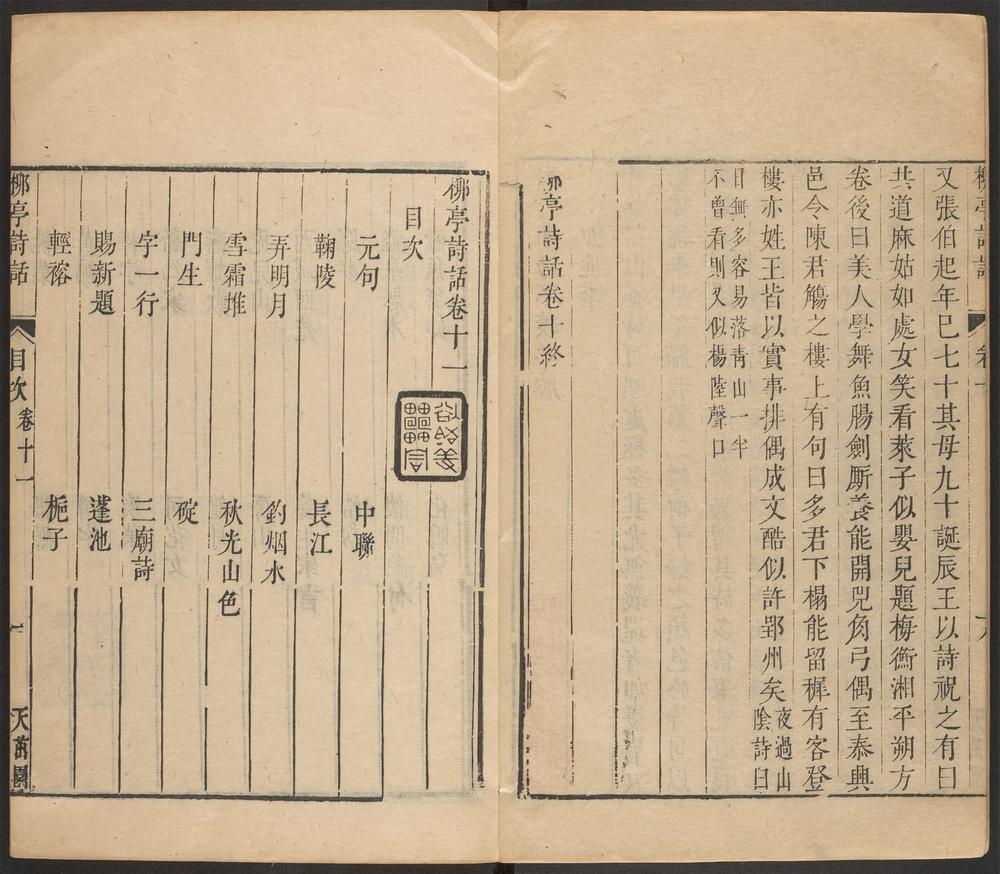 柳亭詩話 卷十
又張伯起年巳七十其母九十誕辰王以詩祝之有曰
共道麻姑如處女笑看萊子似嬰兒題梅衡湘平朔方
卷後曰美人學舞魚腸劍厮養能開兕角弓偶至泰興
邑令陳君觴之樓上有句曰多君下榻能留穉有客登
樓亦姓王皆以實事排偶成文酷似許郢州矣夜過山
陰詩曰
日無多容易落青山一半
不曾看則又似楊陸聲口
柳亭詩話卷十終
柳亭詩話卷十一
目次
元句 中聯
鞠陵 長江
弄明月 釣烟水
雪霜堆 秋光山色
門生 碇
字一行 三廟詩
賜新題 蓬池
輕褣 梔子
柳亭詩話 目次 卷十一 一 天茁園